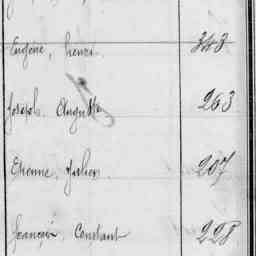 Eugène, henri 343
Joseph, Auguste 263
Etienne, Julien 207
François, Constant 228